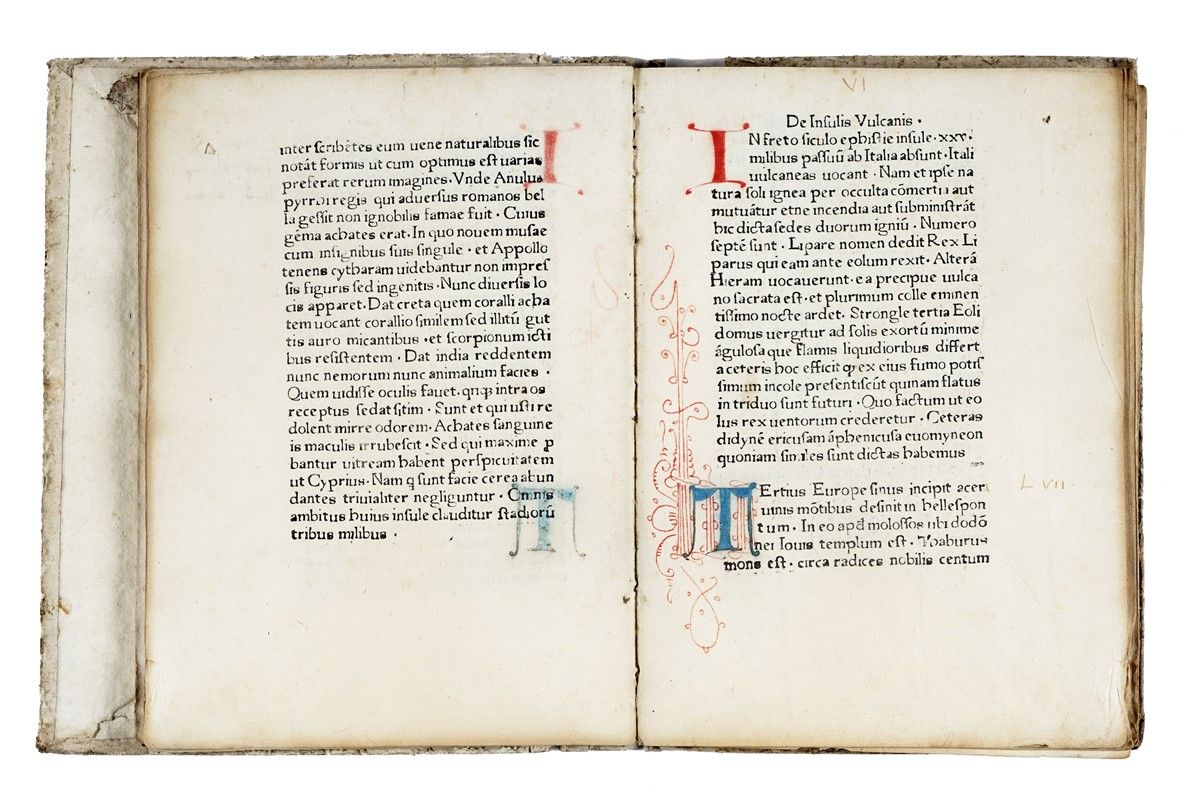 inter scribētes eum uene naturalibus sic
notāt formis ut cum optimus est uarias
preferat rerum imagines. Vnde Anulus
pyrrhi regis qui aduersus romanos bel
la gessit non ignobilis famae fuit · Cuius
gēma achates erat. In quo nouem musae
cum insignibus suis singule · et Appollo
tenens cytharam uidebantur non impres
sis figuris sed ingenitis · Nunc diuersis lo
cis apparet. Dat creta quem coralli acha
tem uocant corallio similem sed illitū gut
tis auro micantibus · et scorpionum icti
bus resistentem · Dat india reddentem
nunc nemorum nunc animalium facies ·
Quem uidisse oculis fauet. intra os
receptus sedat sitim · Sunt et qui usti re
dolent mirre odorem. Achates sanguine
is maculis irrubescit · Sed qui maxime ꝓ
bantur uitream habent perspicuitatem
ut Cyprius · Nam q sunt facie cerea abun
dantes triuialiter negliguntur · Omnis
ambitus huius insule clauditur stadiorū
tribus milibus ·
VI
De Insulis Vulcanis ·
IN freto siculo ephistie insule · xxv.
milibus passuū ab Italia absunt · Itali
uulcaneas uocant · Nam et ipse na
tura soli ignea per occulta cōmertia aut
mutuātur et ne incendia aut subministrāt
hic dicta sedes duorum igniū · Numero
septē sunt · Lipare nomen dedit Rex Li
parus qui eam ante eolum rexit · Alterā
Hieram uocauerunt · ea precipue uulca
no sacrata est · et plurimum colle eminen
tissimo nocte ardet. Strongle tertia Eoli
domus uergitur ad solis exortū minime
āgulosa que flamis liquidioribus differt
a ceteris hoc efficit ꝙ ex eius fumo potis
simum incole presentiscūt quinam flatus
in triduo sunt futuri · Quo factum ut eo
lus rex uentorum crederetur · Ceteras
didynē ericusam āphenicusa euomyneon
quoniam similes sunt dictas habemus
L VII ·
TErtius Europe sinus incipit a ceri
uinis mōtibus desinit in hellespon
tum · In eo apđ molossos ubi dodō
nei Iouis templum est · Thaburus
mons est · circa radices nobilis centum